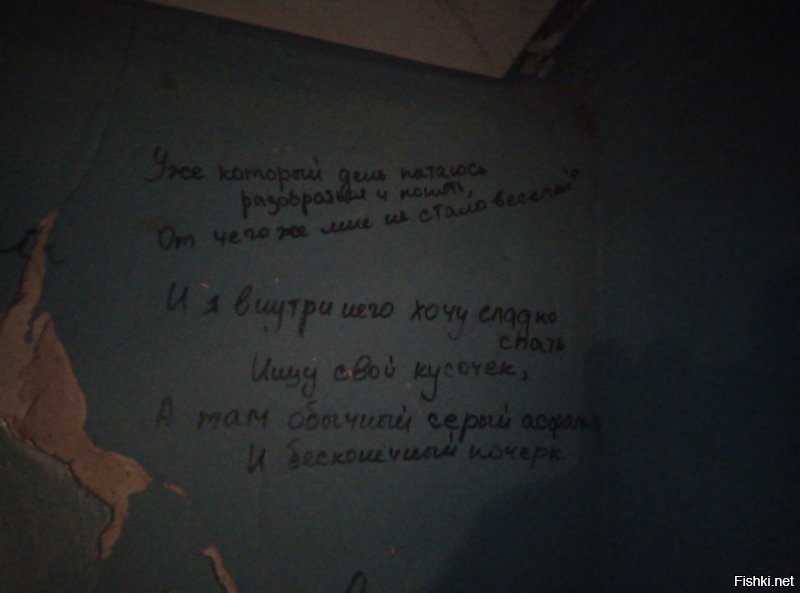 Уже который день патаюсь
разобраться и понять,
От чего же мне не стало веселей?
И я внутри него хочу сладко
спать
Ищу свой кусочек,
А там обычный серый асфальт
И бесконечный почерк
Fishki.net